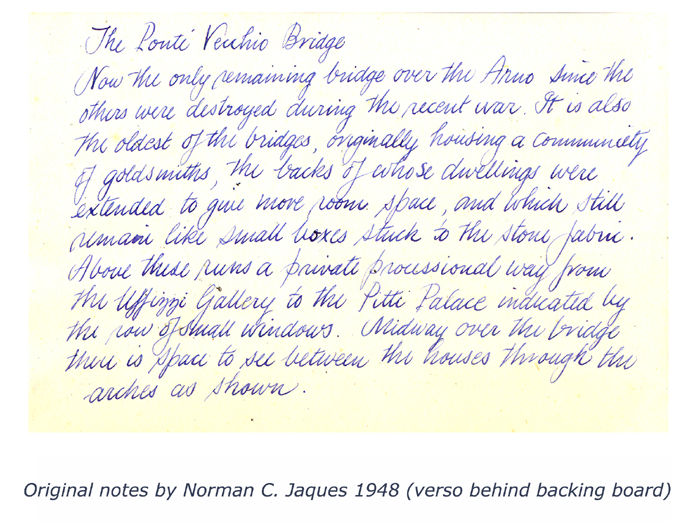 The Ponti Vecchio Bridge
Now the only remaining bridge over the Arno since the
others were destroyed during the recent war. It is also
the oldest of the bridges, originally housing a communiety
of goldsmiths, the backs of whose dwellings were
extended to give more room space, and which still
remain like small boxes stuck to the stone fabric.
Above these runs a private processional way from
the Uffizzi Gallery to the Pitti Palace indicated by
the row of small windows. Midway over the bridge
there is space to see between the houses through the
arches as shown.
Original notes by Norman C. Jaques 1948 (verso behind backing board)